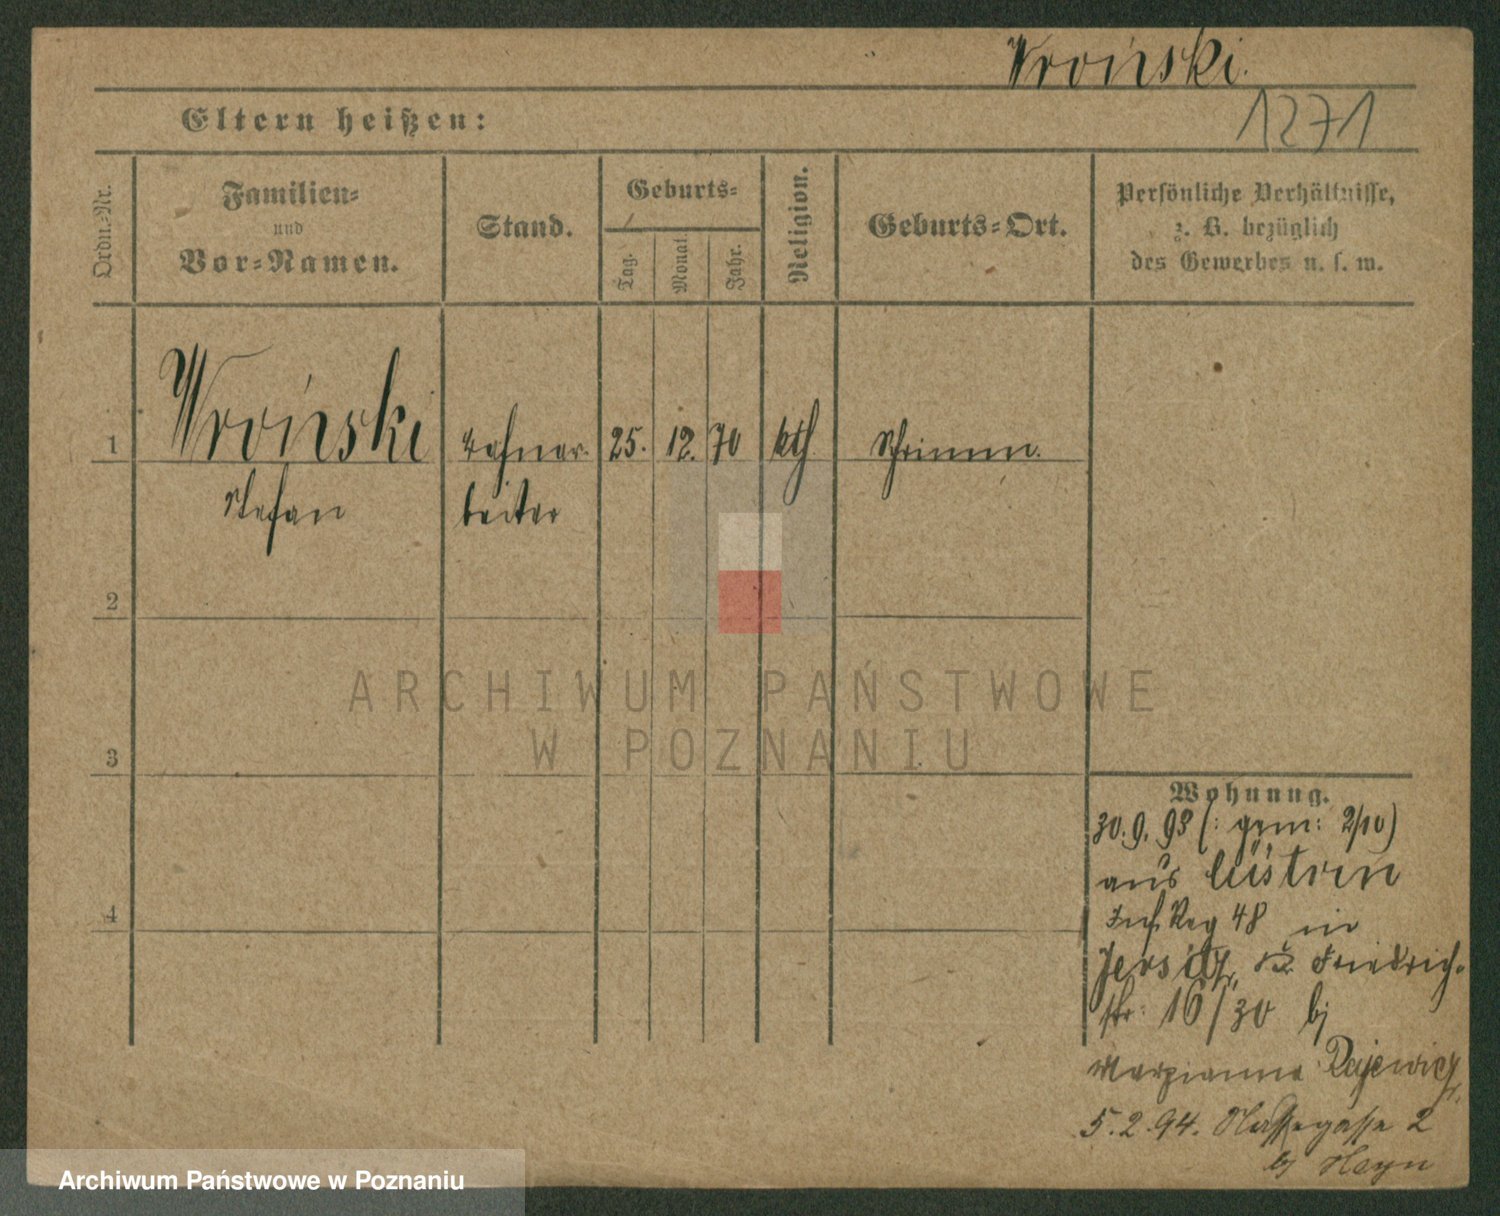 Wroński.
1271
Eltern heißen:
Ordn.-Nr.
Familien-
und
Vor-Namen.
Stand.
Geburts-
Tag.
Monat.
Jahr.
Religion.
Geburts-Ort.
Persönliche Verhältnisse,
z. B. bezüglich
des Gewerbes u. s. w.
1 Wroński 25. 12. 70 kth Schrimm.
Stefan beiter
2
ARCHIWUM PAŃSTWOWE
W POZNANIU
3
4
Wohnung.
30.9.93 (: gem: 2/10)
aus Cüstrin
Inf. Reg 48 in
Jersitz, Friedrich-
str: 16/30 bj
Maryianna Rajewicz,
5.2.94. 2
bj Heyn
Archiwum Państwowe w Poznaniu